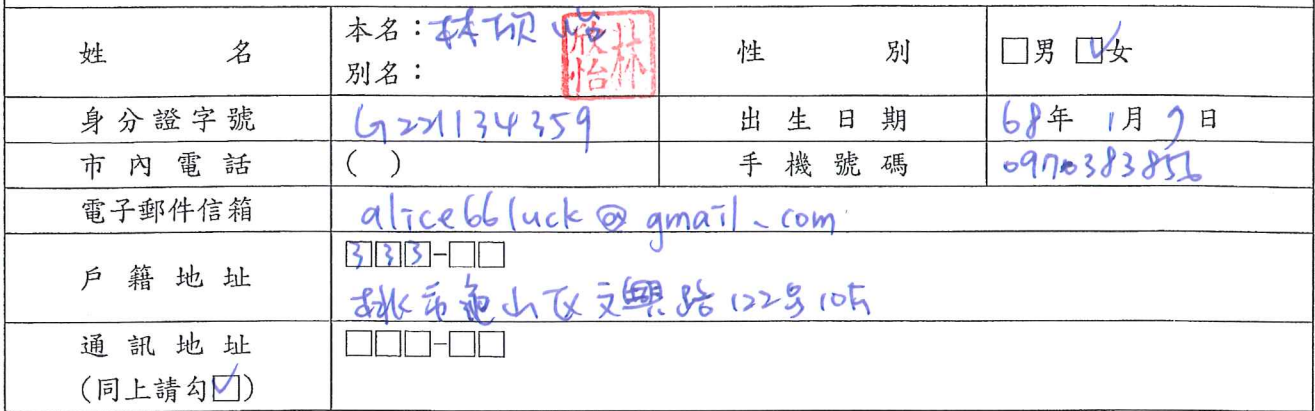 姓名 本名：林欣怡 性別 □男 ☑女
別名：
林欣怡
身分證字號 G221134359 出生日期 68年 1月 9日
市內電話 ( ) 手機號碼 0970383856
電子郵件信箱 alice66luck@gmail.com
戶籍地址 333-□□
桃市龜山区文興路122号10F
通訊地址 □□□-□□
(同上請勾☑)